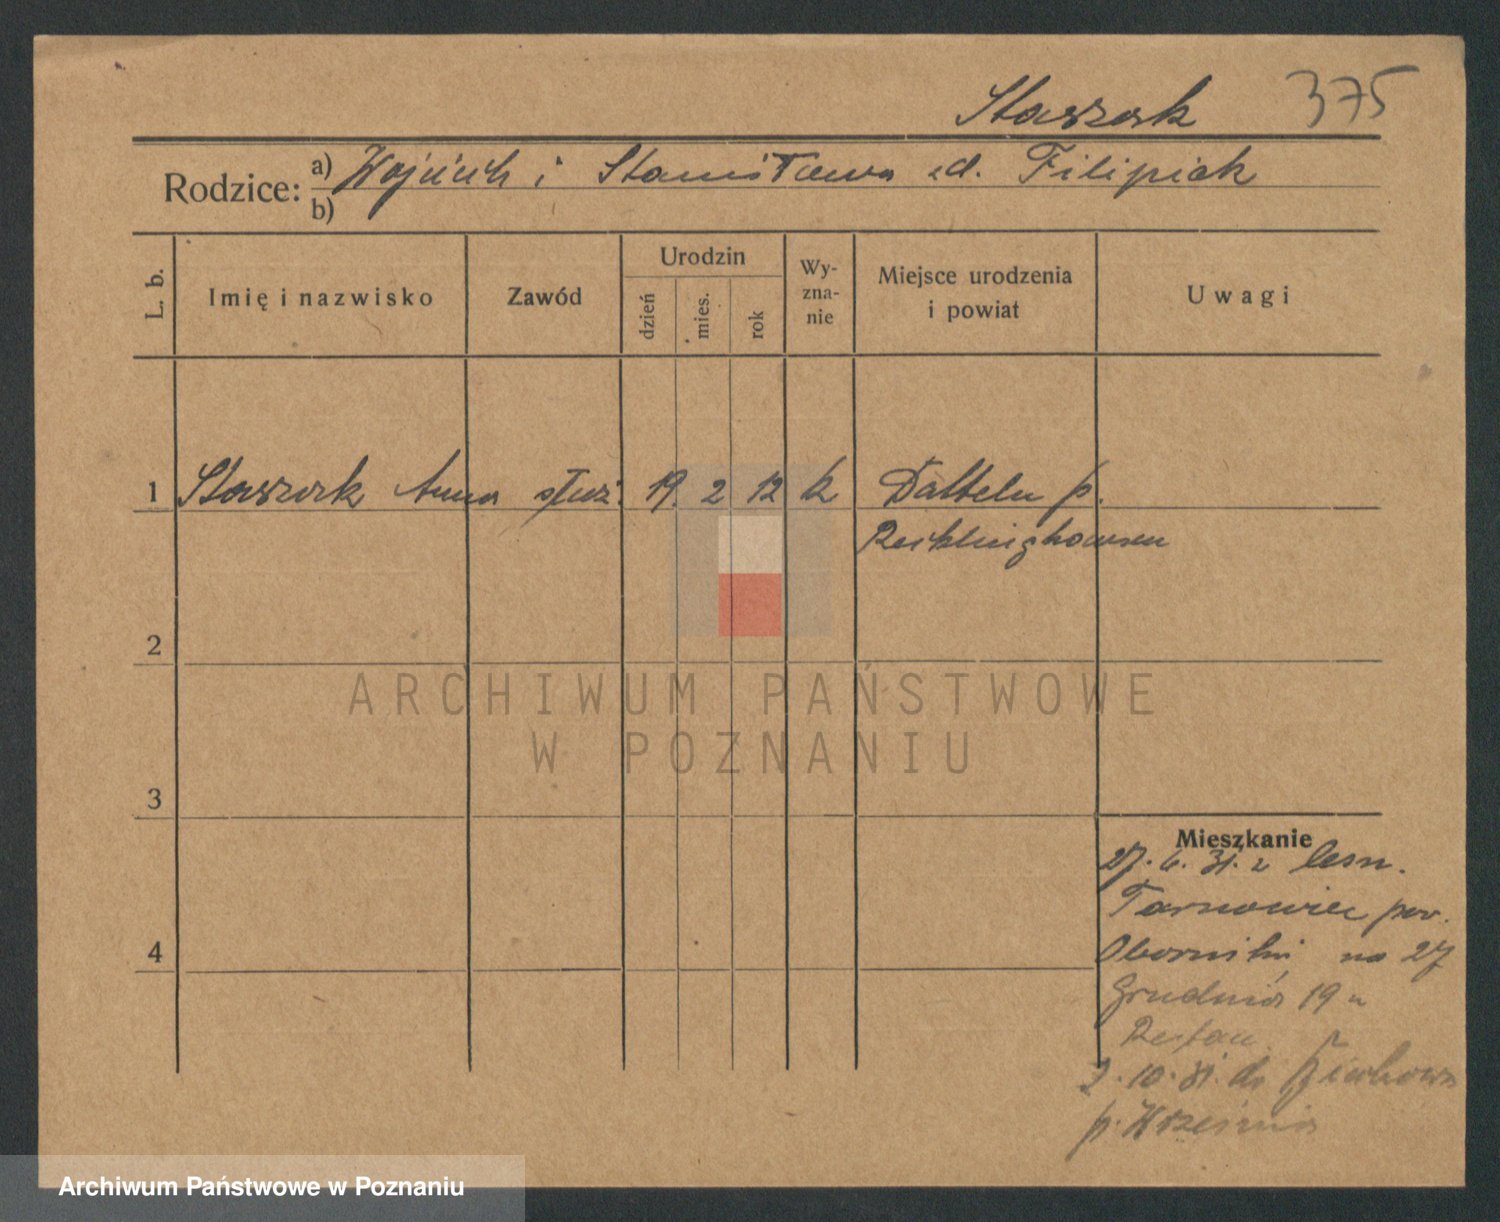 Staszak 375
Rodzice: a) Wojciech i Stanisława zd. Filipiak
b)
L. b.
Imię i nazwisko
Zawód
Urodzin
dzień
mies.
rok
Wy-
zna-
nie
Miejsce urodzenia
i powiat
Uwagi
1 Staszak Anna służ. 19. 2 12 k Datteln p.
Recklinghausen
2
ARCHIWUM PAŃSTWOWE
W POZNANIU
3
Mieszkanie
27. 6. 31. z
Tarnowiec pow.
Oborniki na 27
Grudnia 19 u
2. 10. 31. do
p. Września
4
Archiwum Państwowe w Poznaniu